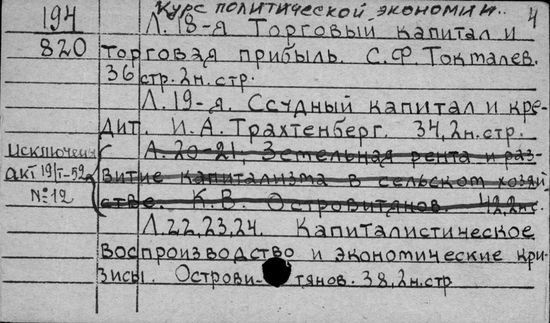 Курс политической экономии.. 4
194
820
Л. 18-я Торговый капитал и
торговая прибыль. С.Ф. Токталев.
36 стр. 2 н. стр.
Л. 19-я. Ссудный капитал и кре-
дит. И.А. Трахтенберг. 34, 2 н. стр.
Исключены
акт 19/I-52
№ 12
Л. 20-21, Земельная рента и раз-
витие капитализма в сельском хозяй
стве. К.В. Островитянов. 42, 2 нс.
Л. 22, 23, 24. Капиталистическое
воспроизводство и экономические кри-
зисы. Острови- тянов. 38, 2 н. стр